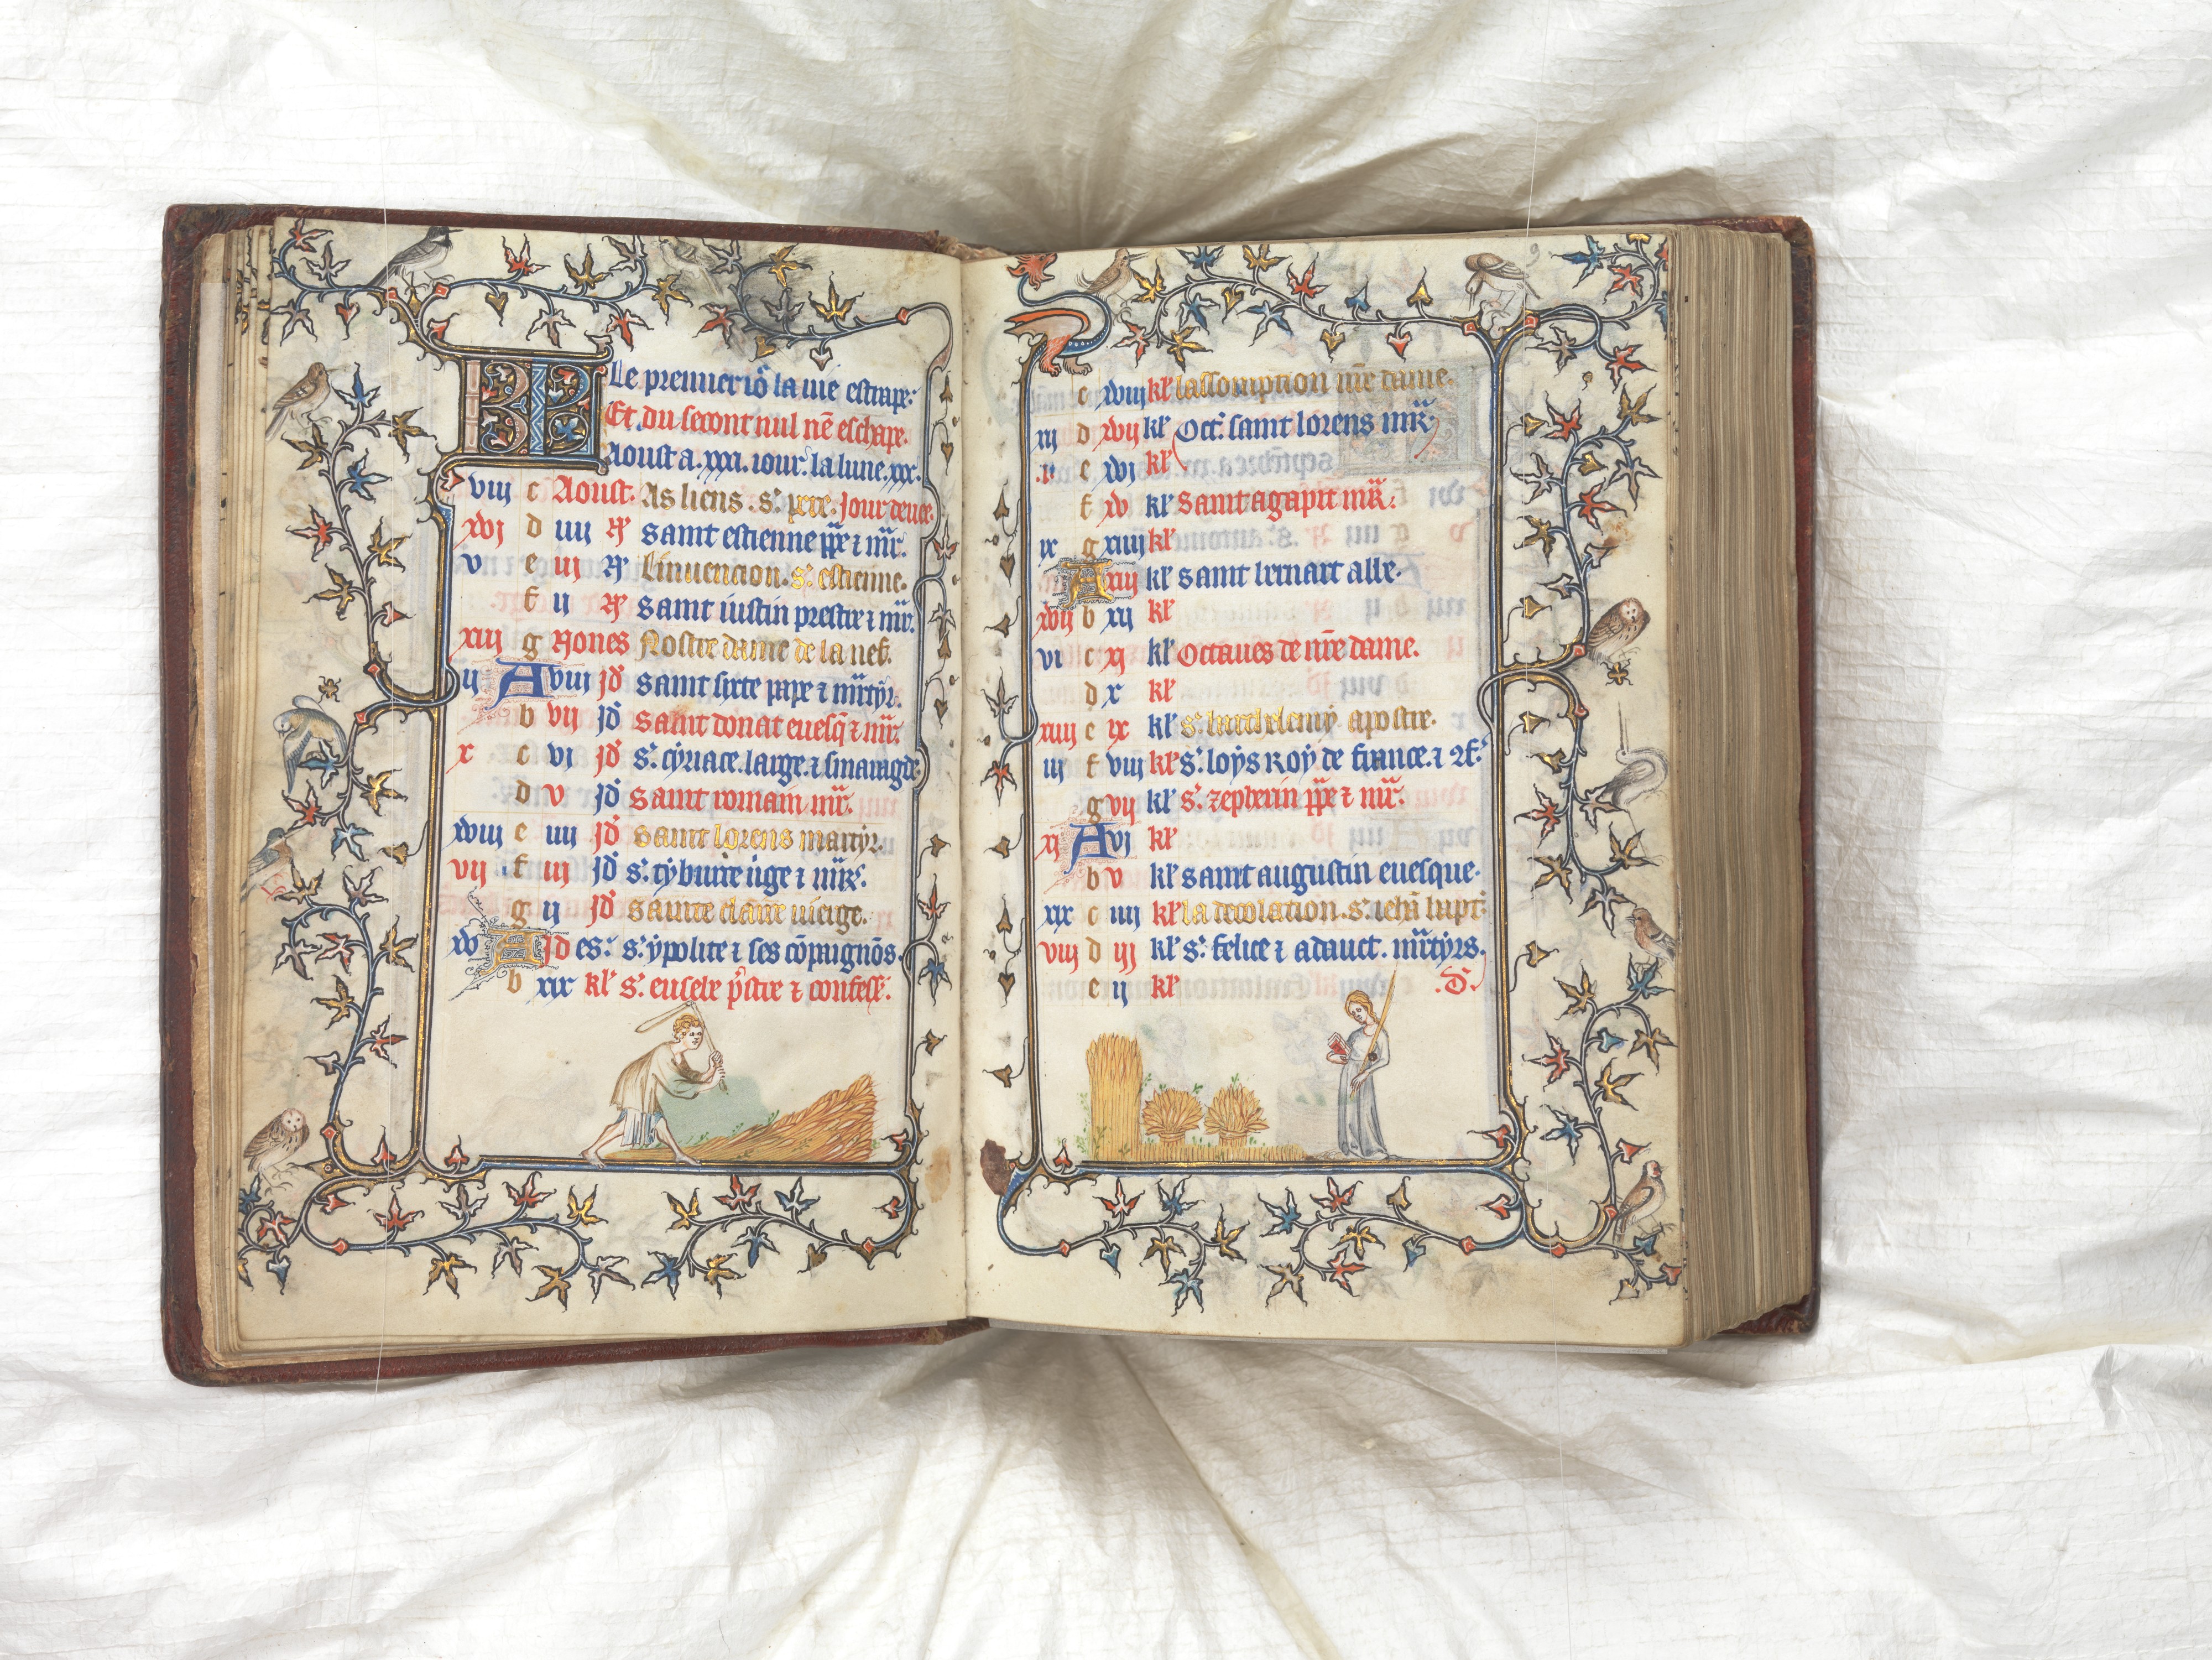 KL Le premier io᷑ la uie estrape:
Et du secont nul nē eschape.
Aoust a .xxxi. iour. la lune .xxx.
viij c Aoust. As liens . s'. pere. Jour deuee.
xvj d iiij N̄ saint estienne pp̄e ⁊ mr̄.
v e iij N̄ Linuencion . s'. estienne.
f ij N̄ saint iustin prestre ⁊ mr̄.
xiij g Nones Nostre dame de la neif.
ij A viij Jd̄ saint sixte pape ⁊ mr̄tyr.
b vij Jd̄ saint donat euesq̄ ⁊ mr̄.
x c vi Jd̄ s'. cyriace. large. ⁊ smaragde.
d v Jd̄ saint romain mr̄.
xviij e iiij Jd̄ saint lorens martyr.
vij f iij Jd̄ s'. tyburce uige ⁊ mr̄s.
g ij Jd̄ sainte claire uierge.
xv A Jdes: s'. ypolite ⁊ ses cōpaignōs.
b xix kl' s'. eusebe p'stre ⁊ confess'.
9
c xviij kl' lassomption nr̄e dame.
xij d xvij kl' Oct'. saint lorens mr̄.
.i. e xvj kl'
f xv kl' saint agapit mr̄.
ix g xiiij kl'
A xiij kl' saint bernart abbe.
xvij b xij kl'
vi c xj kl' Octaues de nr̄e dame.
d x kl'
xiiij e ix kl' s'. berthelemy apostre.
iij f viij kl' s'. loys Roy de france. ⁊ 9f.
g vij kl' s'. zepherin pp̄e ⁊ mr̄.
xj A vj kl'
b v kl' saint augustin euesque.
xix c iiij kl' la decolation . s'. iehā bapt'.
viij d iij kl' s'. felice ⁊ adauct . mr̄tyrs.
e ij kl' .D.